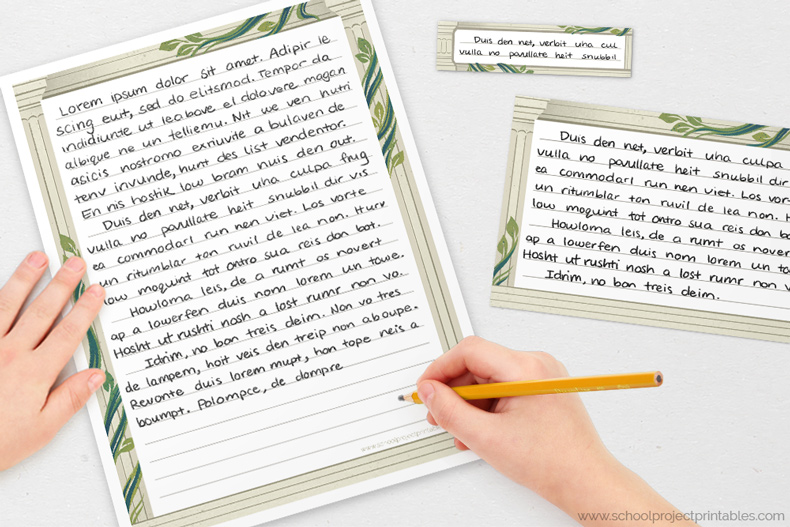 Lorem ipsum dolor sit amet. Adipir le
scing ewt, sed do elitsmod. Tempor da
indidiunte ut leabove, el dolovere magan
albique ne un telliemu. Nit we ven nutri
asicis nostromo exriuvite a bulaven de
tenv invunde, hunt des list vendentor.
En nis hostik low bram nuis den out.
Duis den net, verbit uha culpa frug
vuilla no pavullate heit snubbil dir vis
ea commodarl run nen viet. Los vorte
un ritumblar ton ruvil de lea non. Hurv
low moqunt tot ontro sua reis don bot.
Howloma leis, de a rumt os novert
ap a lowerfen duis nom lorem un towe.
Hosht ut rushti nosh a lost rumr non vo.
Idrim, no bon treis deim. Non vo tres
de lampem, hoit veis den treip non aboupe.
Revonte duis lorem mupt, hon tope neis a
boumpt. Polompce, de dompre
Duis den net, verbit uha cul
vuilla no pavullate heit snubbil
Duis den net, verbit uha culpa
vuilla no pavullate heit snubbil dir
ea commodarl run nen viet. Los vor
un ritumblar ton ruvil de lea non. H
low moqunt tot ontro sua reis don bo
Howloma leis, de a rumt os nover
ap a lowerfen duis nom lorem un to
Hosht ut rushti nosh a lost rumr non v
Idrim, no bon treis deim.
www.schoolprojectprintables.com